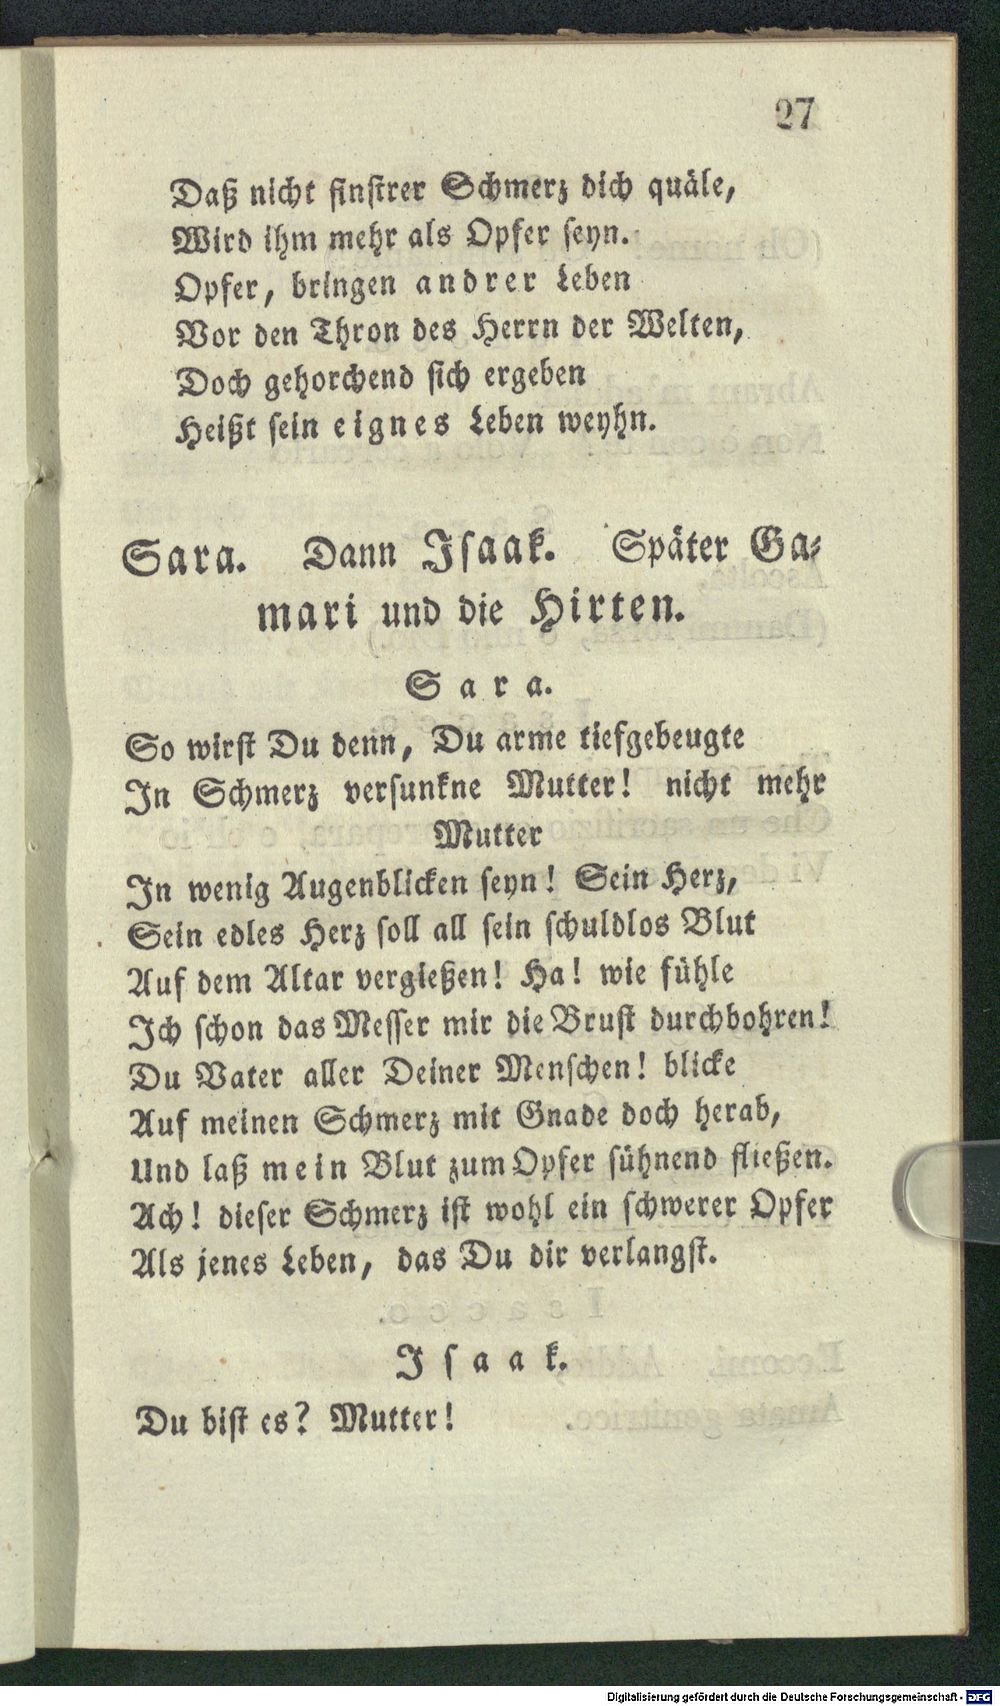 27
Daß nicht finstrer Schmerz dich quäle,
Wird ihm mehr als Opfer seyn.
Opfer, bringen andrer Leben
Vor den Thron des Herrn der Welten,
Doch gehorchend sich ergeben
Heißt sein eignes Leben weyhn.
Sara. Dann Isaak. Später Ga-
mari und die Hirten.
Sara.
So wirst Du denn, Du arme tiefgebeugte
In Schmerz versunkne Mutter! nicht mehr
Mutter
In wenig Augenblicken seyn! Sein Herz,
Sein edles Herz soll all sein schuldlos Blut
Auf dem Altar vergießen! Ha! wie fühle
Ich schon das Messer mir die Brust durchbohren!
Du Vater aller Deiner Menschen! blicke
Auf meinen Schmerz mit Gnade doch herab,
Und laß mein Blut zum Opfer sühnend fließen.
Ach! dieser Schmerz ist wohl ein schwerer Opfer
Als jenes Leben, das Du dir verlangst.
Isaak.
Du bist es? Mutter!
Digitalisierung gefördert durch die Deutsche Forschungsgemeinschaft - DFG